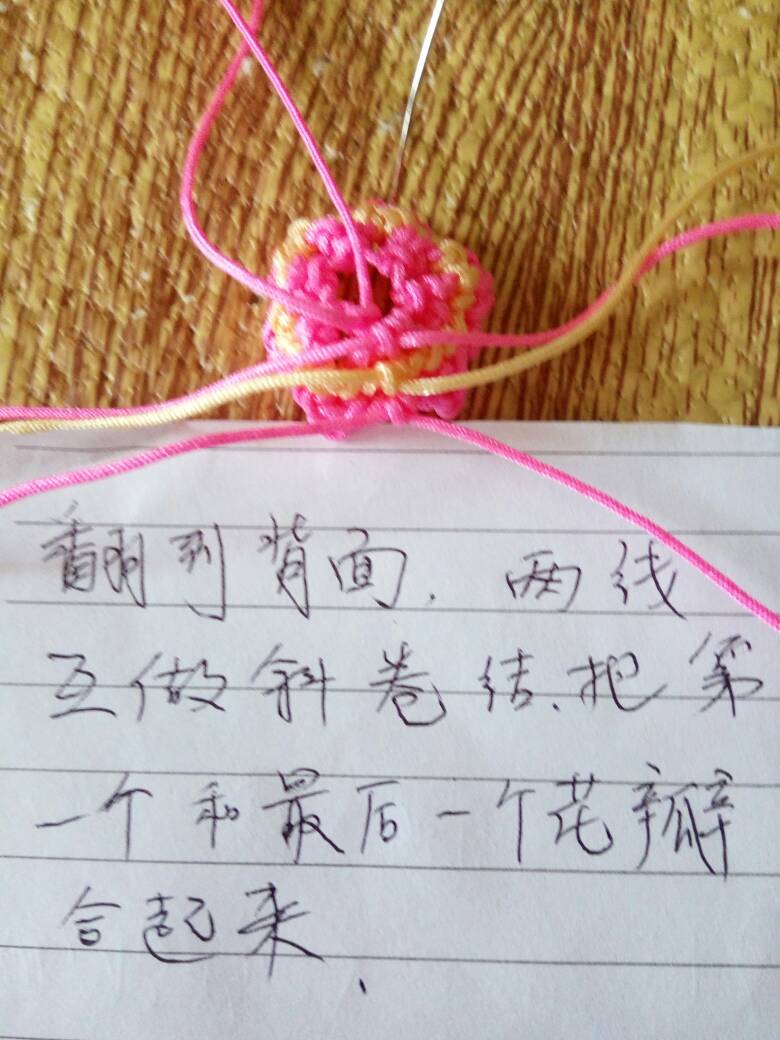 翻到背面.两线
互做斜卷结.把第
一个和最后一个花瓣
合起来.